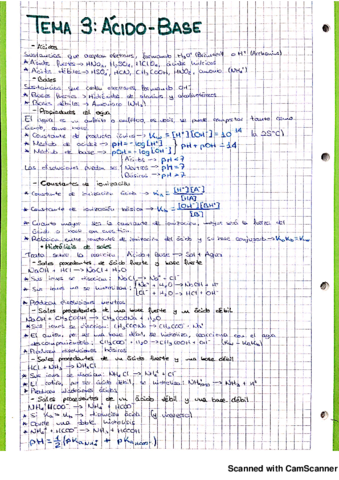 TEMA 3: ÁCIDO-BASE
- Ácidos
Sustancias que aceptan electrones, formando H₃O⁺ (Brönsted) o H⁺ (Arrhenius)
* Ácidos fuertes → HNO₃, H₂SO₄, HClO₄, ácidos hídricos
* Ácidos débiles → HSO₄⁻, HCN, CH₃COOH, HNO₂, amonio (NH₄⁺)
- Bases
Sustancias que ceden electrones, formando OH⁻.
* Bases fuertes → Hidróxidos de alcalinos y alcalinotérreos
* Bases débiles → Amoniaco (NH₃)
- Propiedades del agua
El agua es un anfótero o anfiprótico, es decir, se puede comportar tanto como
ácido, como base.
* Constante de producto iónico → Kw = [H⁺][OH⁻] = 10⁻¹⁴ (a 25°C)
* Medida de acidez → pH = -log[H⁺]
* Medida de base → pOH = -log[OH⁻]
pH + pOH = 14
Las disoluciones pueden ser
Ácidas → pH < 7
Neutras → pH = 7
Básicas → pH > 7
- Constantes de ionización
* Constante de ionización ácida → Ka = [H⁺][A⁻] / [HA]
* Constante de ionización básica → Kb = [OH⁻][BH⁺] / [B]
* Cuanto mayor sea la constante de ionización, mayor será la fuerza del
ácido o base en cuestión
* Relación entre constante de ionización del ácido y su base conjugada → Ka·Kb = Kw
- Hidrólisis de sales
Tratan sobre la reacción Ácido + Base → Sal + Agua
- Sales procedentes de ácido fuerte y base fuerte
NaOH + HCl → NaCl + H₂O
* Sus iones se disocian: NaCl → Na⁺ + Cl⁻
* Sus iones no se hidrolizan:
Na⁺ + H₂O → NaOH + H⁺
Cl⁻ + H₂O → HCl + OH⁻
* Producen disoluciones neutras
- Sales procedentes de una base fuerte y un ácido débil
NaOH + CH₃COOH → CH₃COONa + H₂O
* Sus iones se disocian: CH₃COONa → CH₃COO⁻ + Na⁺
CH₃COO⁻ + H₂O → CH₃COOH + OH⁻
* Producen disoluciones básicas
- Sales procedentes de un ácido fuerte y una base débil
HCl + NH₃ → NH₄Cl
* Sus iones se disocian: NH₄Cl → NH₄⁺ + Cl⁻
* El catión, por ser ácido débil, se hidroliza: NH₄⁺ → NH₃ + H⁺
* Producen disoluciones ácidas
- Sales procedentes de un ácido débil y una base débil
* Si Ka = Kb → disolución ácida (y viceversa)
* Ocurre una doble hidrólisis
* NH₄⁺ + HCOO⁻ → NH₃ + HCOOH
Scanned with CamScanner